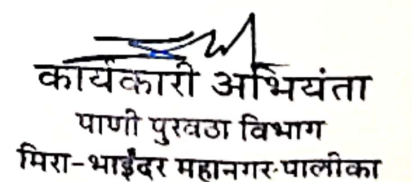 कार्यकारी अभियंता
पाणी पुरवठा विभाग
मिरा-भाईंदर महानगर-पालीका